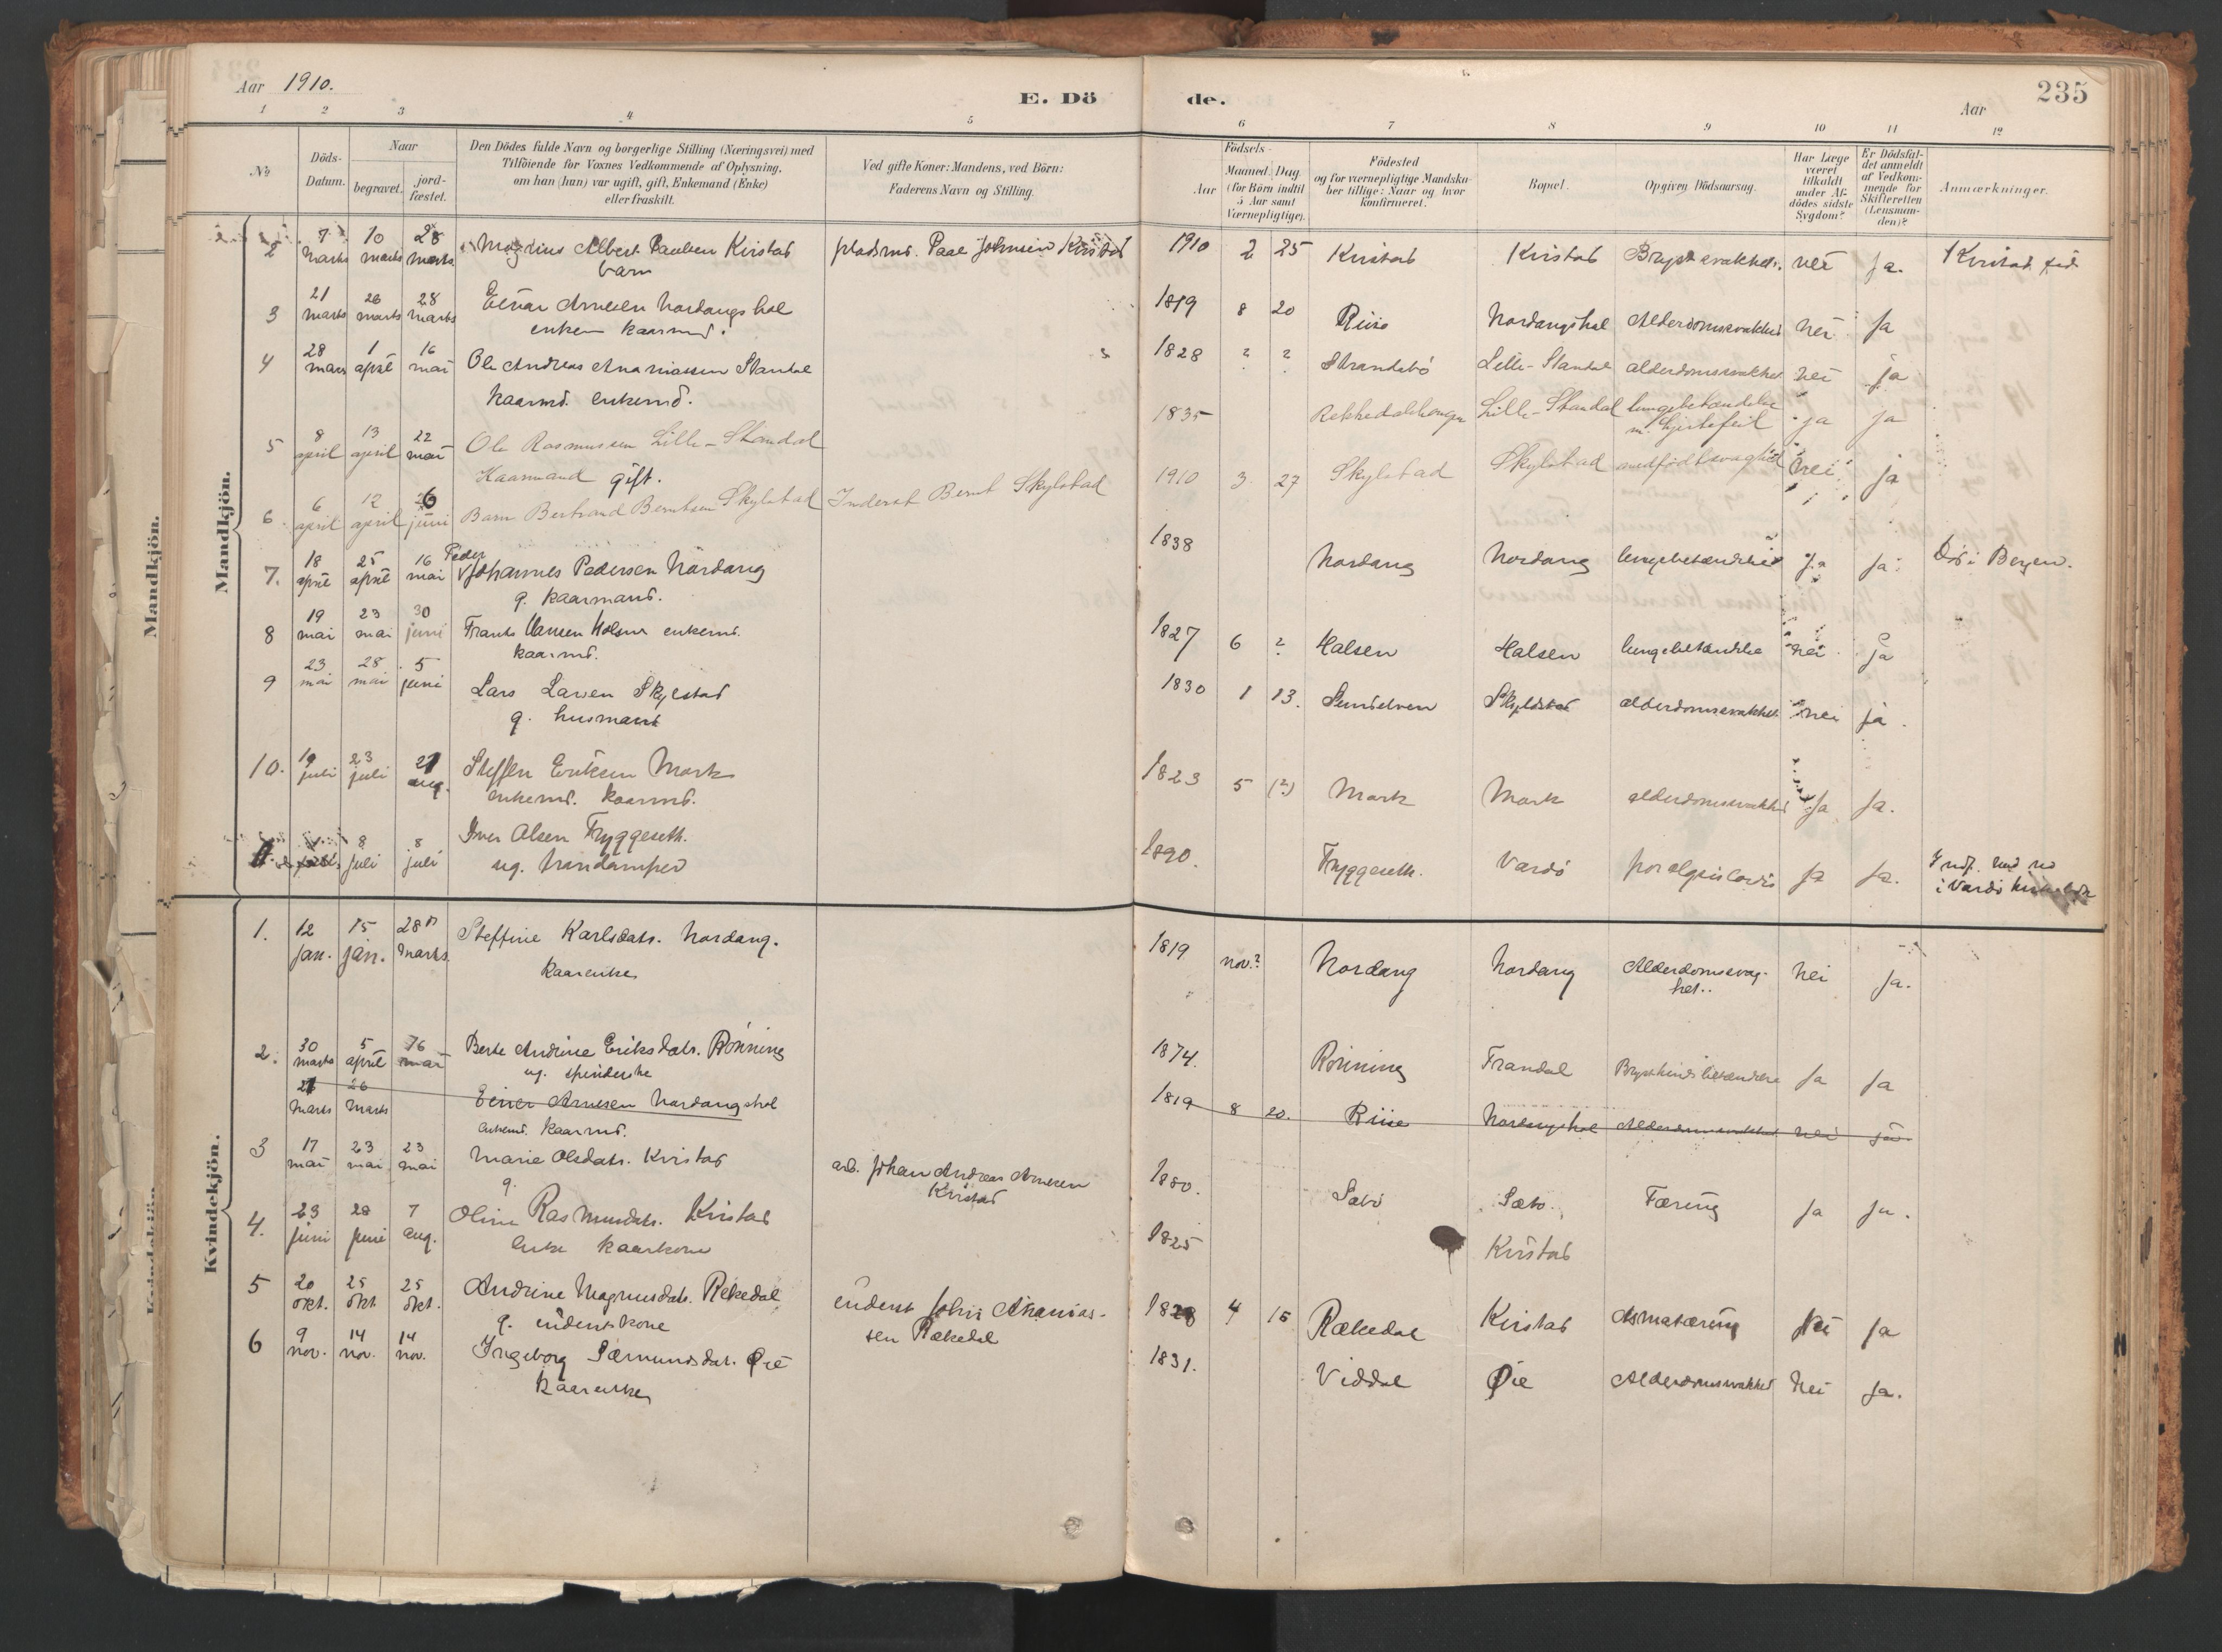 Aar 1910.
E. Dö de.
Aar
235
1 2 3 4 5 6 7 8 9 10 11 12
No
Döds-
Datum.
Naar
begravet.
jord-
fæstet.
Den Dödes fulde Navn og borgerlige Stilling (Næringsvei) med
Tilföiende for Voxnes Vedkommende af Oplysning,
om han (hun) var ugift, gift, Enkemand (Enke)
eller fraskilt.
Ved gifte Koner: Mandens, ved Börn:
Faderens Navn og Stilling.
Födsels-
Aar
Maaned. Dag
(for Börn indtil
5 Aar samt
Værnepligtige).
Födested
og for værnepligtige Mandska-
ber tillige: Naar og hvor
konfirmeret.
Bopæl.
Opgiven Dödsaarsag.
Har Læge
været
tilkaldt
under Af-
dödes sidste
Sygdom?
Er Dödsfal-
det anmeldt
af Vedkom-
mende for
Skifteretten
(Lensman-
den)?
Anmærkninger.
Mandkjön.
Mandkjön.
2 7 marts 10 marts 28 marts Albert Paulsen Kvistad pladsmd. Paal Johnsen Kvistad 1910 2 25 Kvistad Kvistad nei ja. Kvistad
barn
3 21 marts 26 marts 28 marts Einar Arnesen Nordangshol 1819 8 20 Riise Nordangshol Alderdomssvakhed nei ja
enkem kaarmd.
4 28 mars 1 april 16 mai Ole Andreas Ananiassen Standal 1828 ? ? Strandebö Lille-Standal alderdomssvakhed nei ja
kaarmd. enkemd.
5 8 april 13 april 22 mai Ole Rasmussen Lille-Standal 1835 Lille-Standal lungebetændelse ja ja
m. hjertefeil
Kaarmand gift.
6 6 april 12 april 26 juni Barn Bertrand Berntsen Skylstad Inderst Bernt Skylstad 1910 3 27 Skylstad Skylstad medfödt svaghed nei ja
7. 18 april 25 april 16 mai Peder Johannes Pedersen Nordang 1838 Nordang Nordang lungebetændelse ja ja Död i Bergen.
g. kaarmand.
8 19 mai 23 mai 30 juni Frants Hansen enkemd. 1827 6 ? Halsen Halsen lungebetændelse nei ja
kaarmd.
9 23 mai 28 mai 5 juni Lars Larsen Skylstad 1830 1 13. Sunelven Skylstad alderdomssvakhet nei ja
g. husmand
10. 19 juli 23 juli 21 aug. Steffen Eriksen Mork 1823 5 (?) Mork Mork alderdomssvakhed ja ja.
enkemd. kaarmd.
11. 8 juli 8 juli Iver Olsen Tryggeseth. 1890. Tryggeseth. Vardö ja ja.
ug. i Vardö
Kvindekjön.
Kvindekjön
1. 12 jan. 15 jan. 28 marts. Steffine Karlsdatr. Nordang. 1819 nov.? Nordang Nordang Alderdomssvag- nei ja.
het..
kaarenke
2. 30 marts 5 april 16 mai Berte Andrine Eriksdatr. Rönning 1874. Rönning Frandal ja ja
ug. spinderske
21 marts 26 marts Einar Arnesen Nordangshol 1819 8 20. Riise Nordangshol Alderdomssvakhet nei ja
enkemd. kaarmd.
3 17 mai 23 mai 23 mai Marie Olsdatr. Kvistad arb. Johan Andreas Arnesen 1880. Sæbö Sæbö Tæring ja ja.
g. Kvistad
4. 23 juni 28 juni 7 aug. Oline Rasmusdatr. Kvistad 1825 Kvistad
Enke kaarkone
5 20 okt. 25 okt 25 okt. Andrine Magnusdatr. Rekedal inderst John Ananias- 1828 4 15 Rækedal Kvistad Asmatæring nei ja
g. inderstkone sen Rækedal
6 9 nov. 14 nov. 14 nov. Ingeborg Sæmundsdat. Øie 1831. Viddal Øie Alderdomssvakhed nei ja.
kaarenke